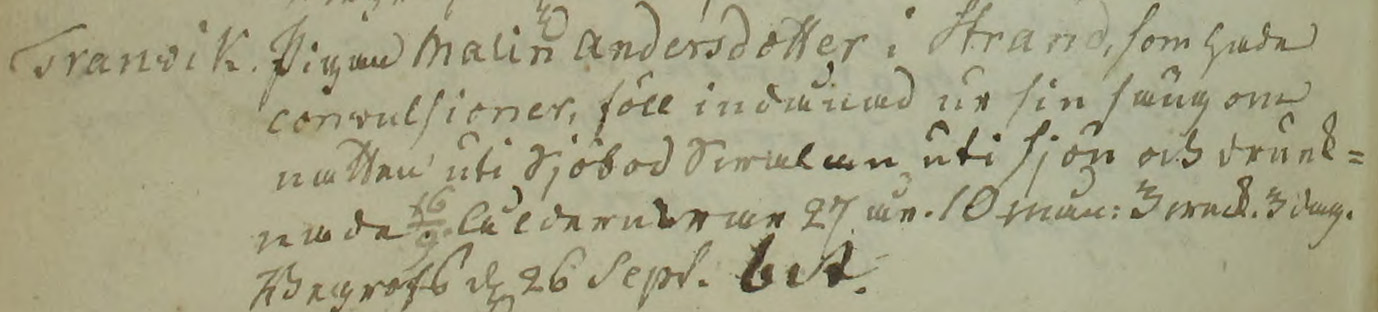 Tranvik. Pigan Malin Andersdotter i Strand, som hade
convulsioner, föll ur sin säng om
natten uti Sjöbod uti sjön och drunk=
nade 16/9. ålderen war 27 år. 10 mån: 3 weck. 3 dag.
Begrofs d. 26 Sept. bet.